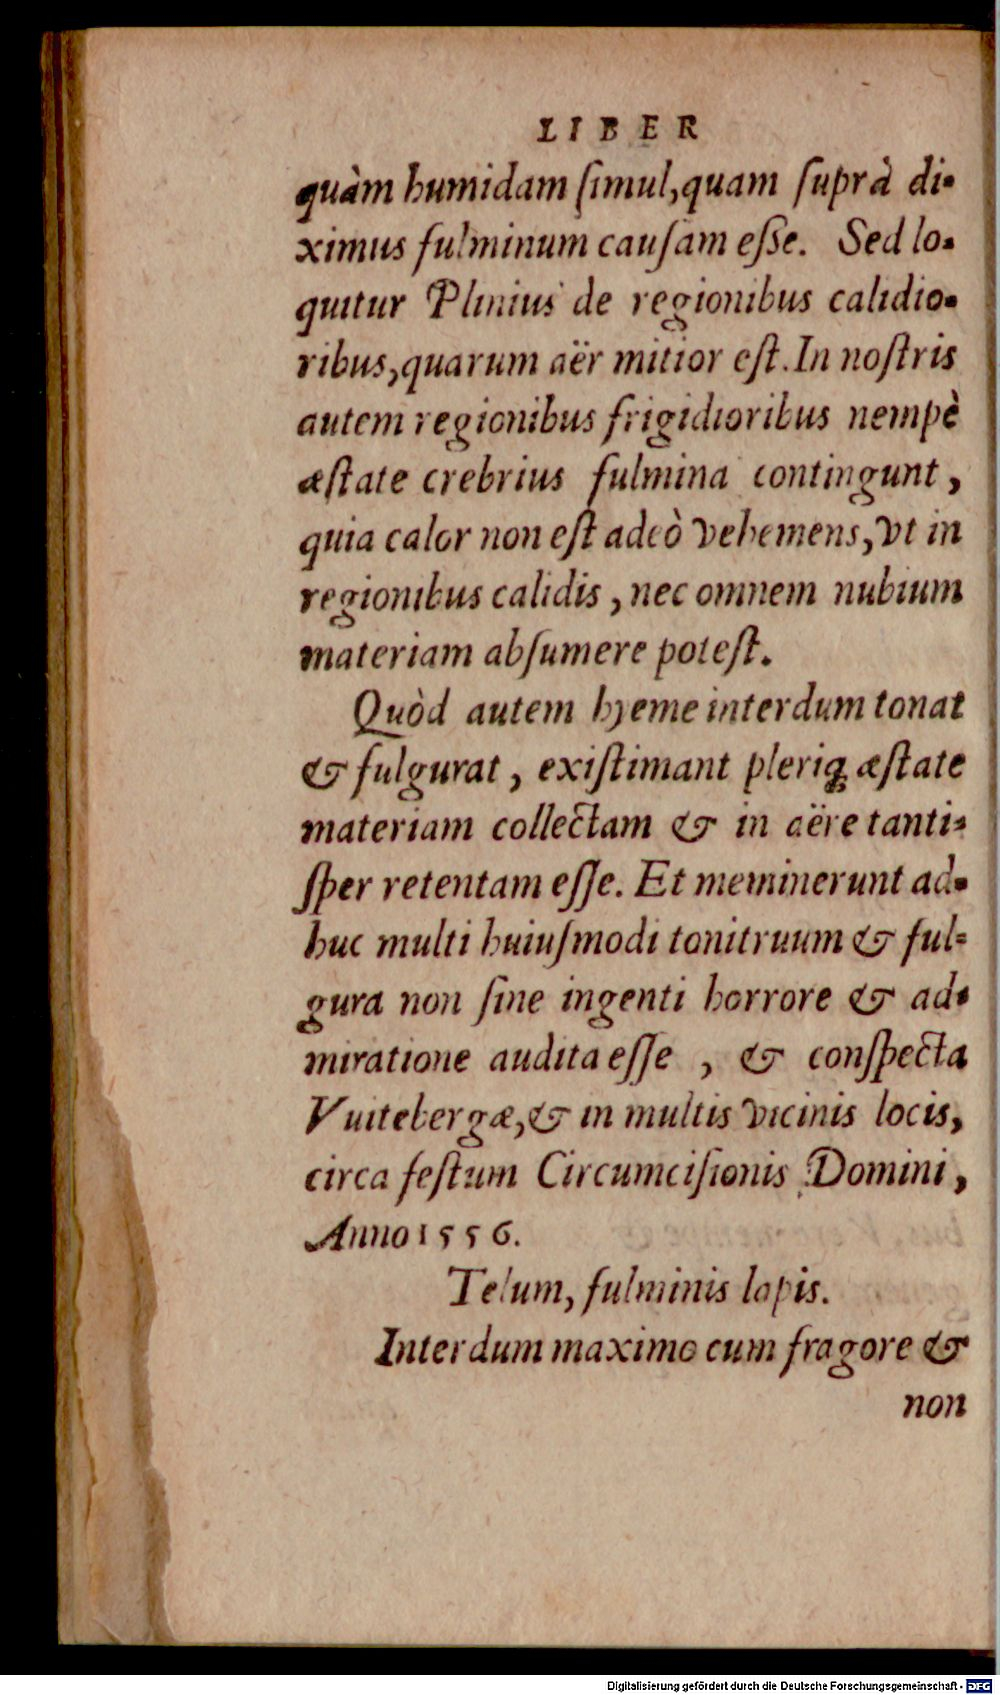 LIBER
quàm humidam ſimul, quam ſuprà di-
ximus fulminum cauſam eſſe. Sed lo-
quitur Plinius de regionibus calidio-
ribus, quarum aër mitior eſt. In noſtris
autem regionibus frigidioribus nempè
æſtate crebrius fulmina contingunt,
quia calor non eſt adeò vehemens, vt in
regionibus calidis, nec omnem nubium
materiam abſumere poteſt.
Quòd autem hyeme interdum tonat
& fulgurat, exiſtimant pleriq; æſtate
materiam collectam & in aëre tanti-
ſper retentam eſſe. Et meminerunt ad-
huc multi huiuſmodi tonitruum & ful-
gura non ſine ingenti horrore & ad-
miratione audita eſſe, & conſpecta
Vuitebergæ, & in multis vicinis locis,
circa feſtum Circumciſionis Domini,
Anno 1556.
Telum, fulminis lapis.
Interdum maximo cum fragore &
non
Digitalisierung gefördert durch die Deutsche Forschungsgemeinschaft - DFG